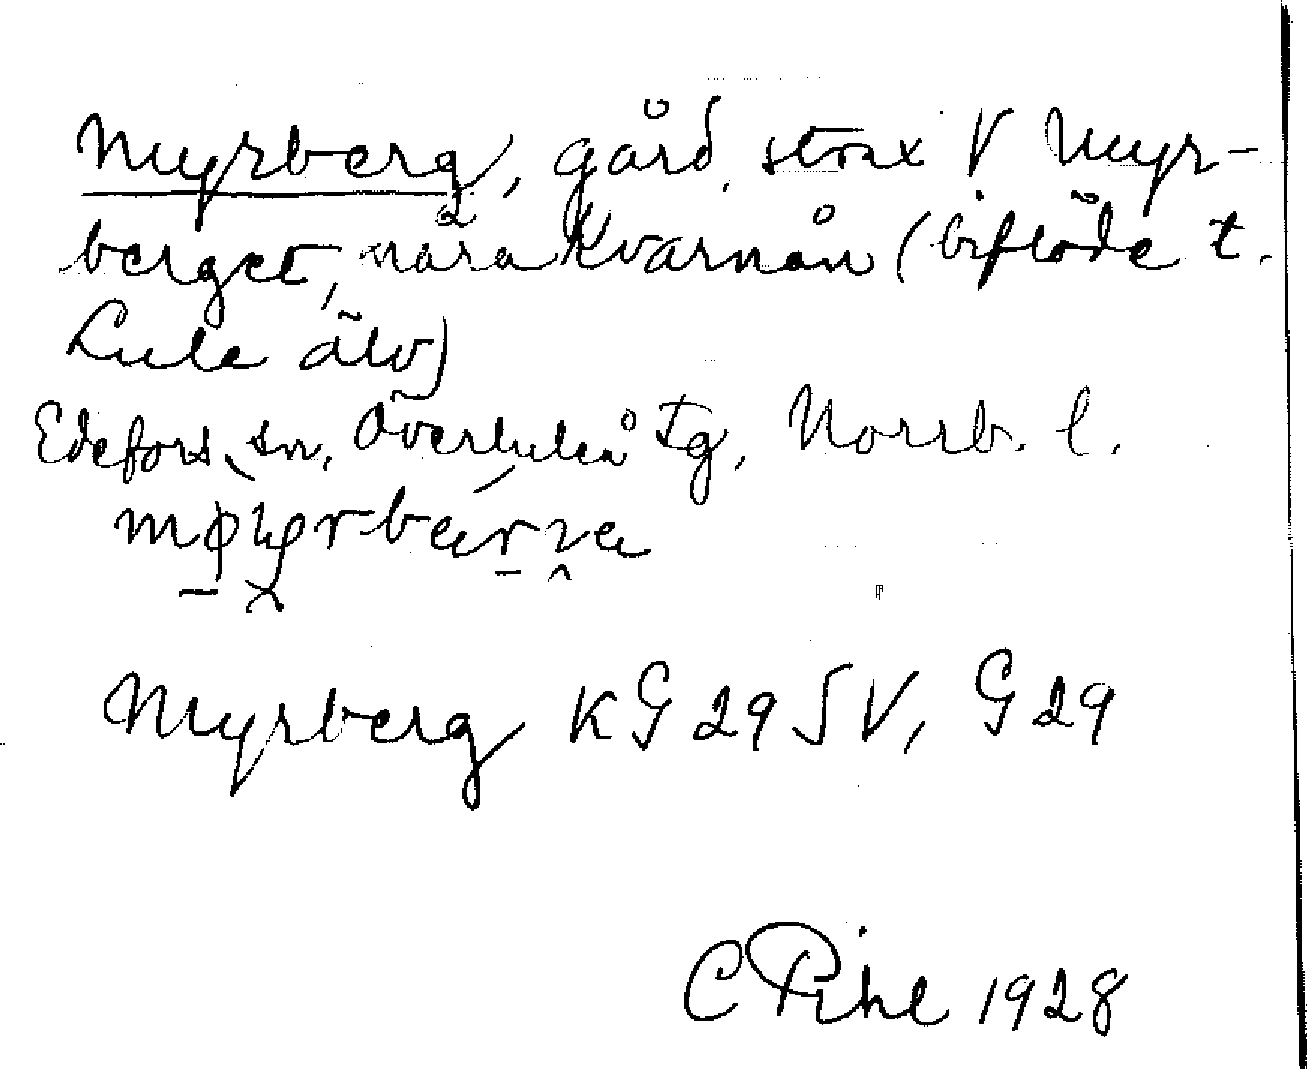 Myrberg, gård, strax V Myr-
berget, nära Kvarnån (biflöde t.
Lule älv)
Edefors sn, Överluleå tg, Norrb. l.
Myrberg KG 29 SV, G 29
C Pihl 1928